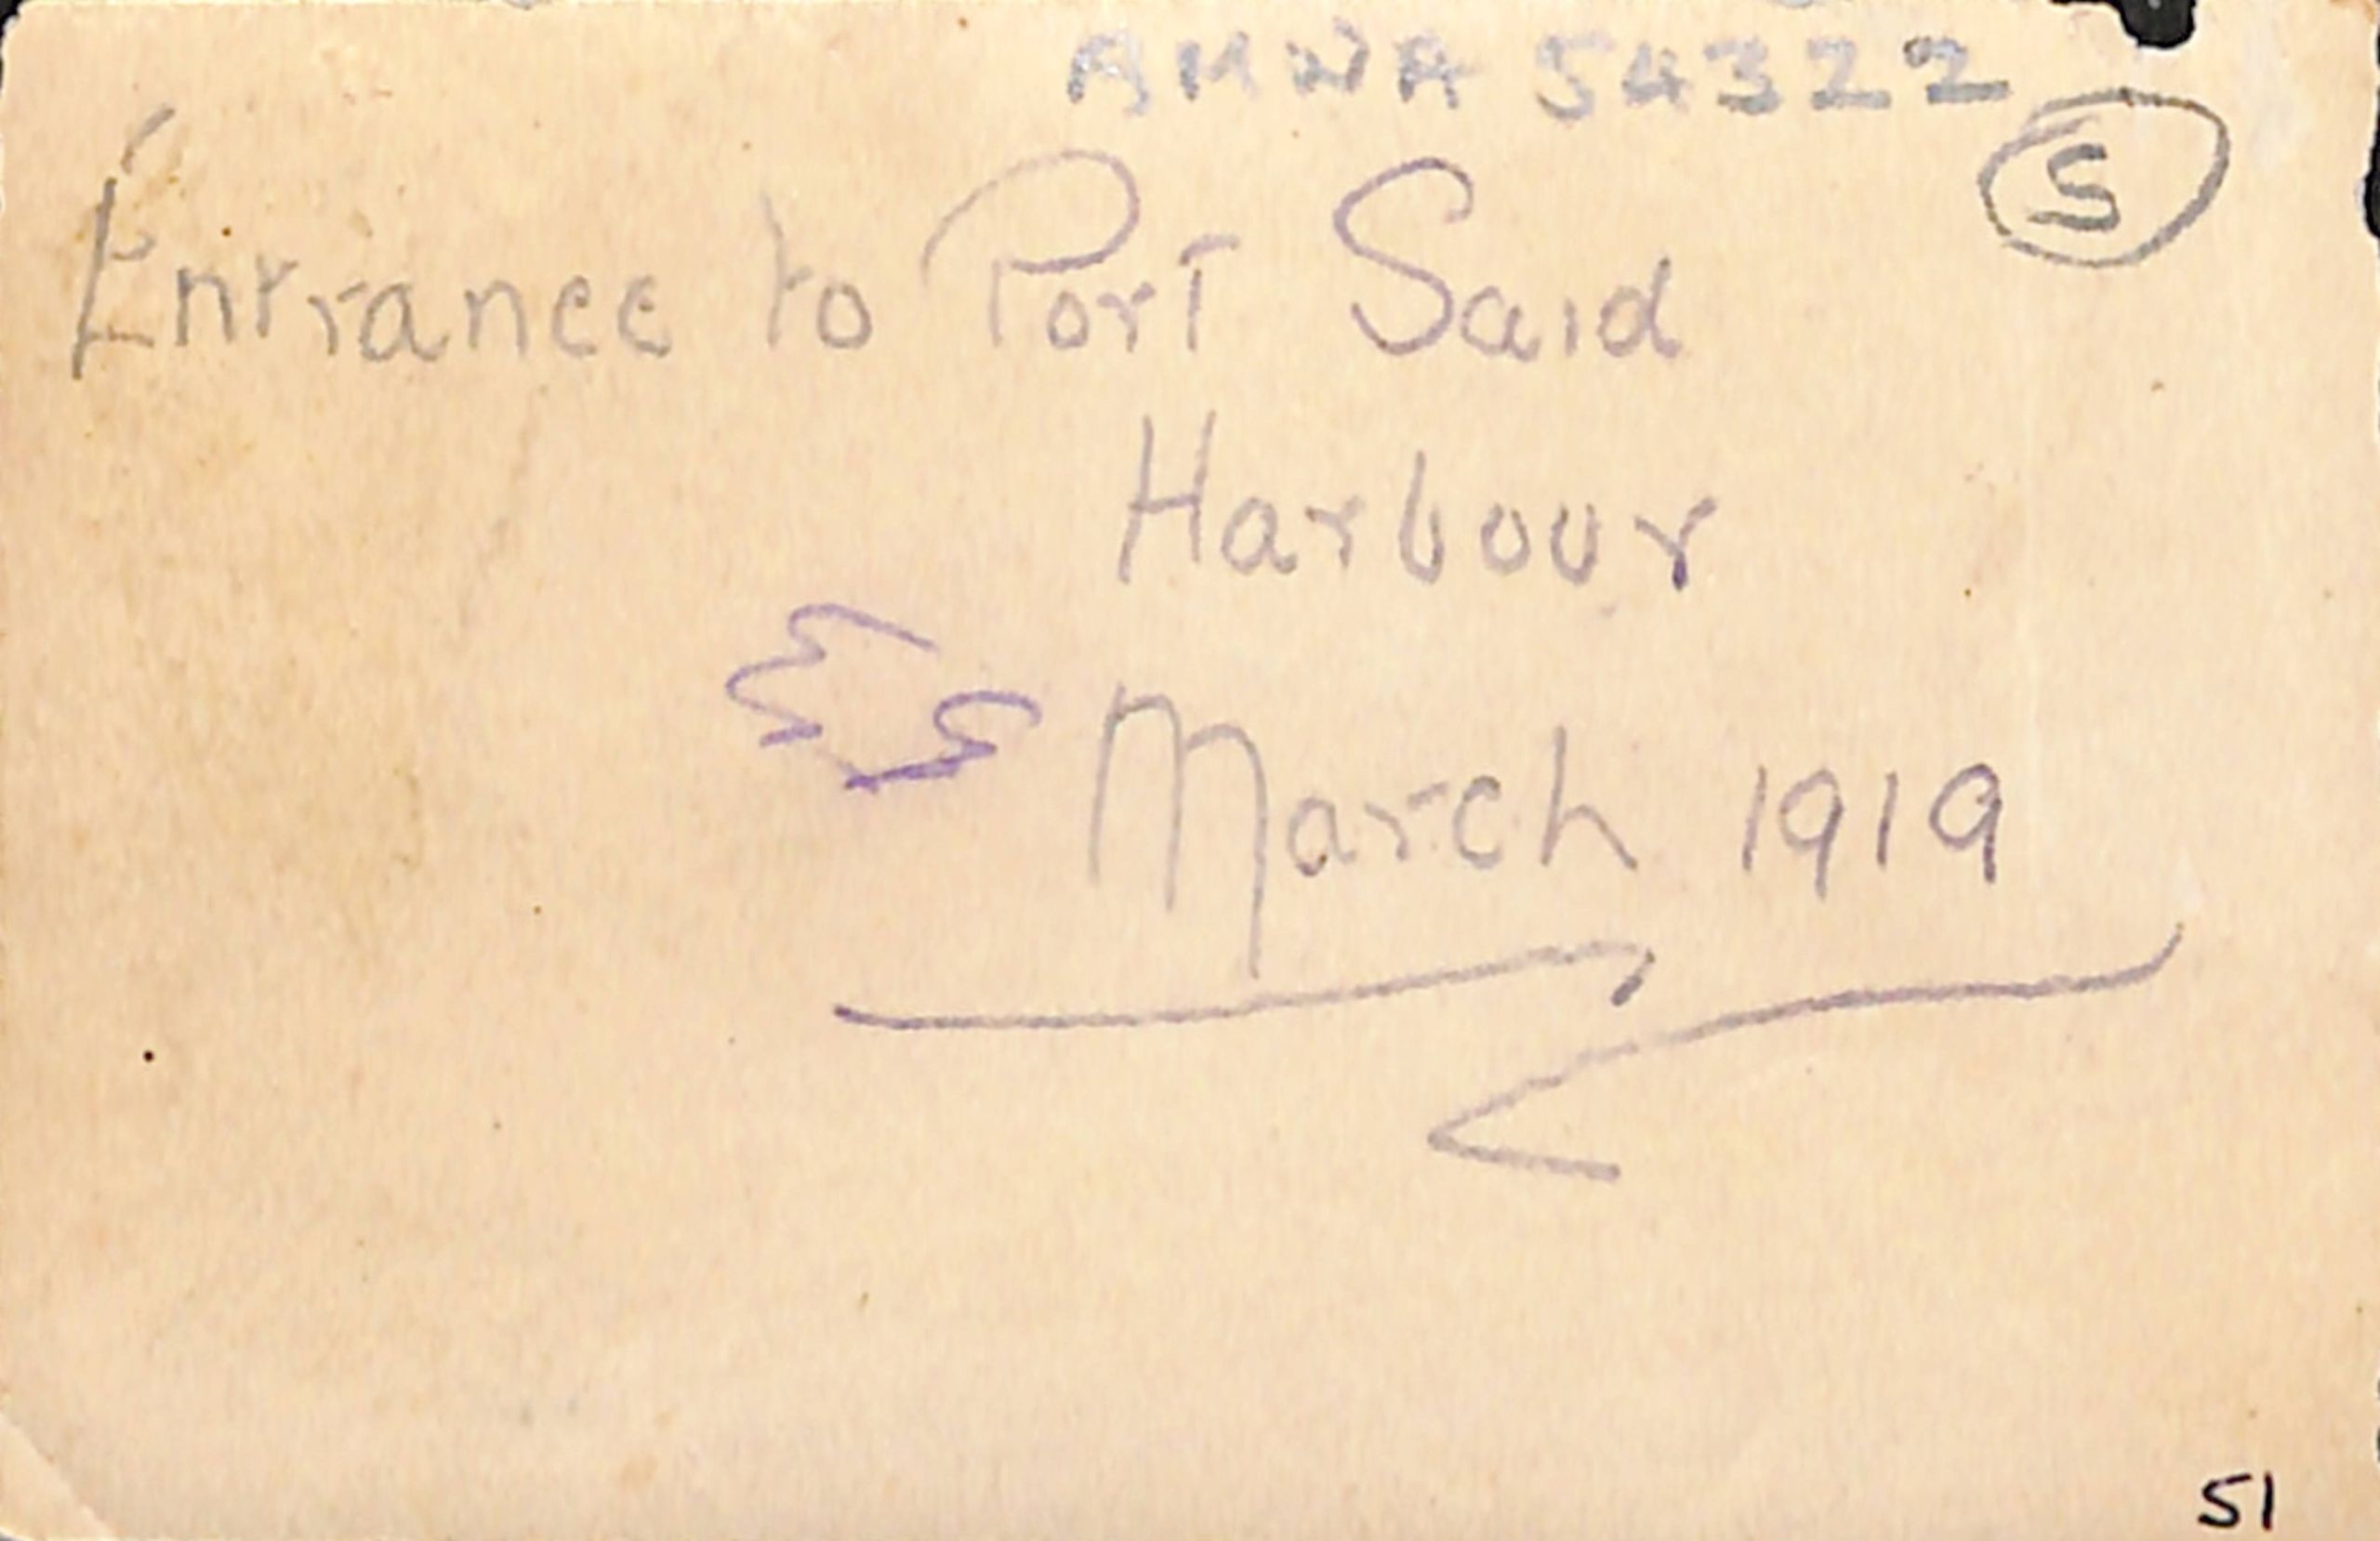 AMWA 54322
S
Entrance to Port Said
Harbour
March 1919
51